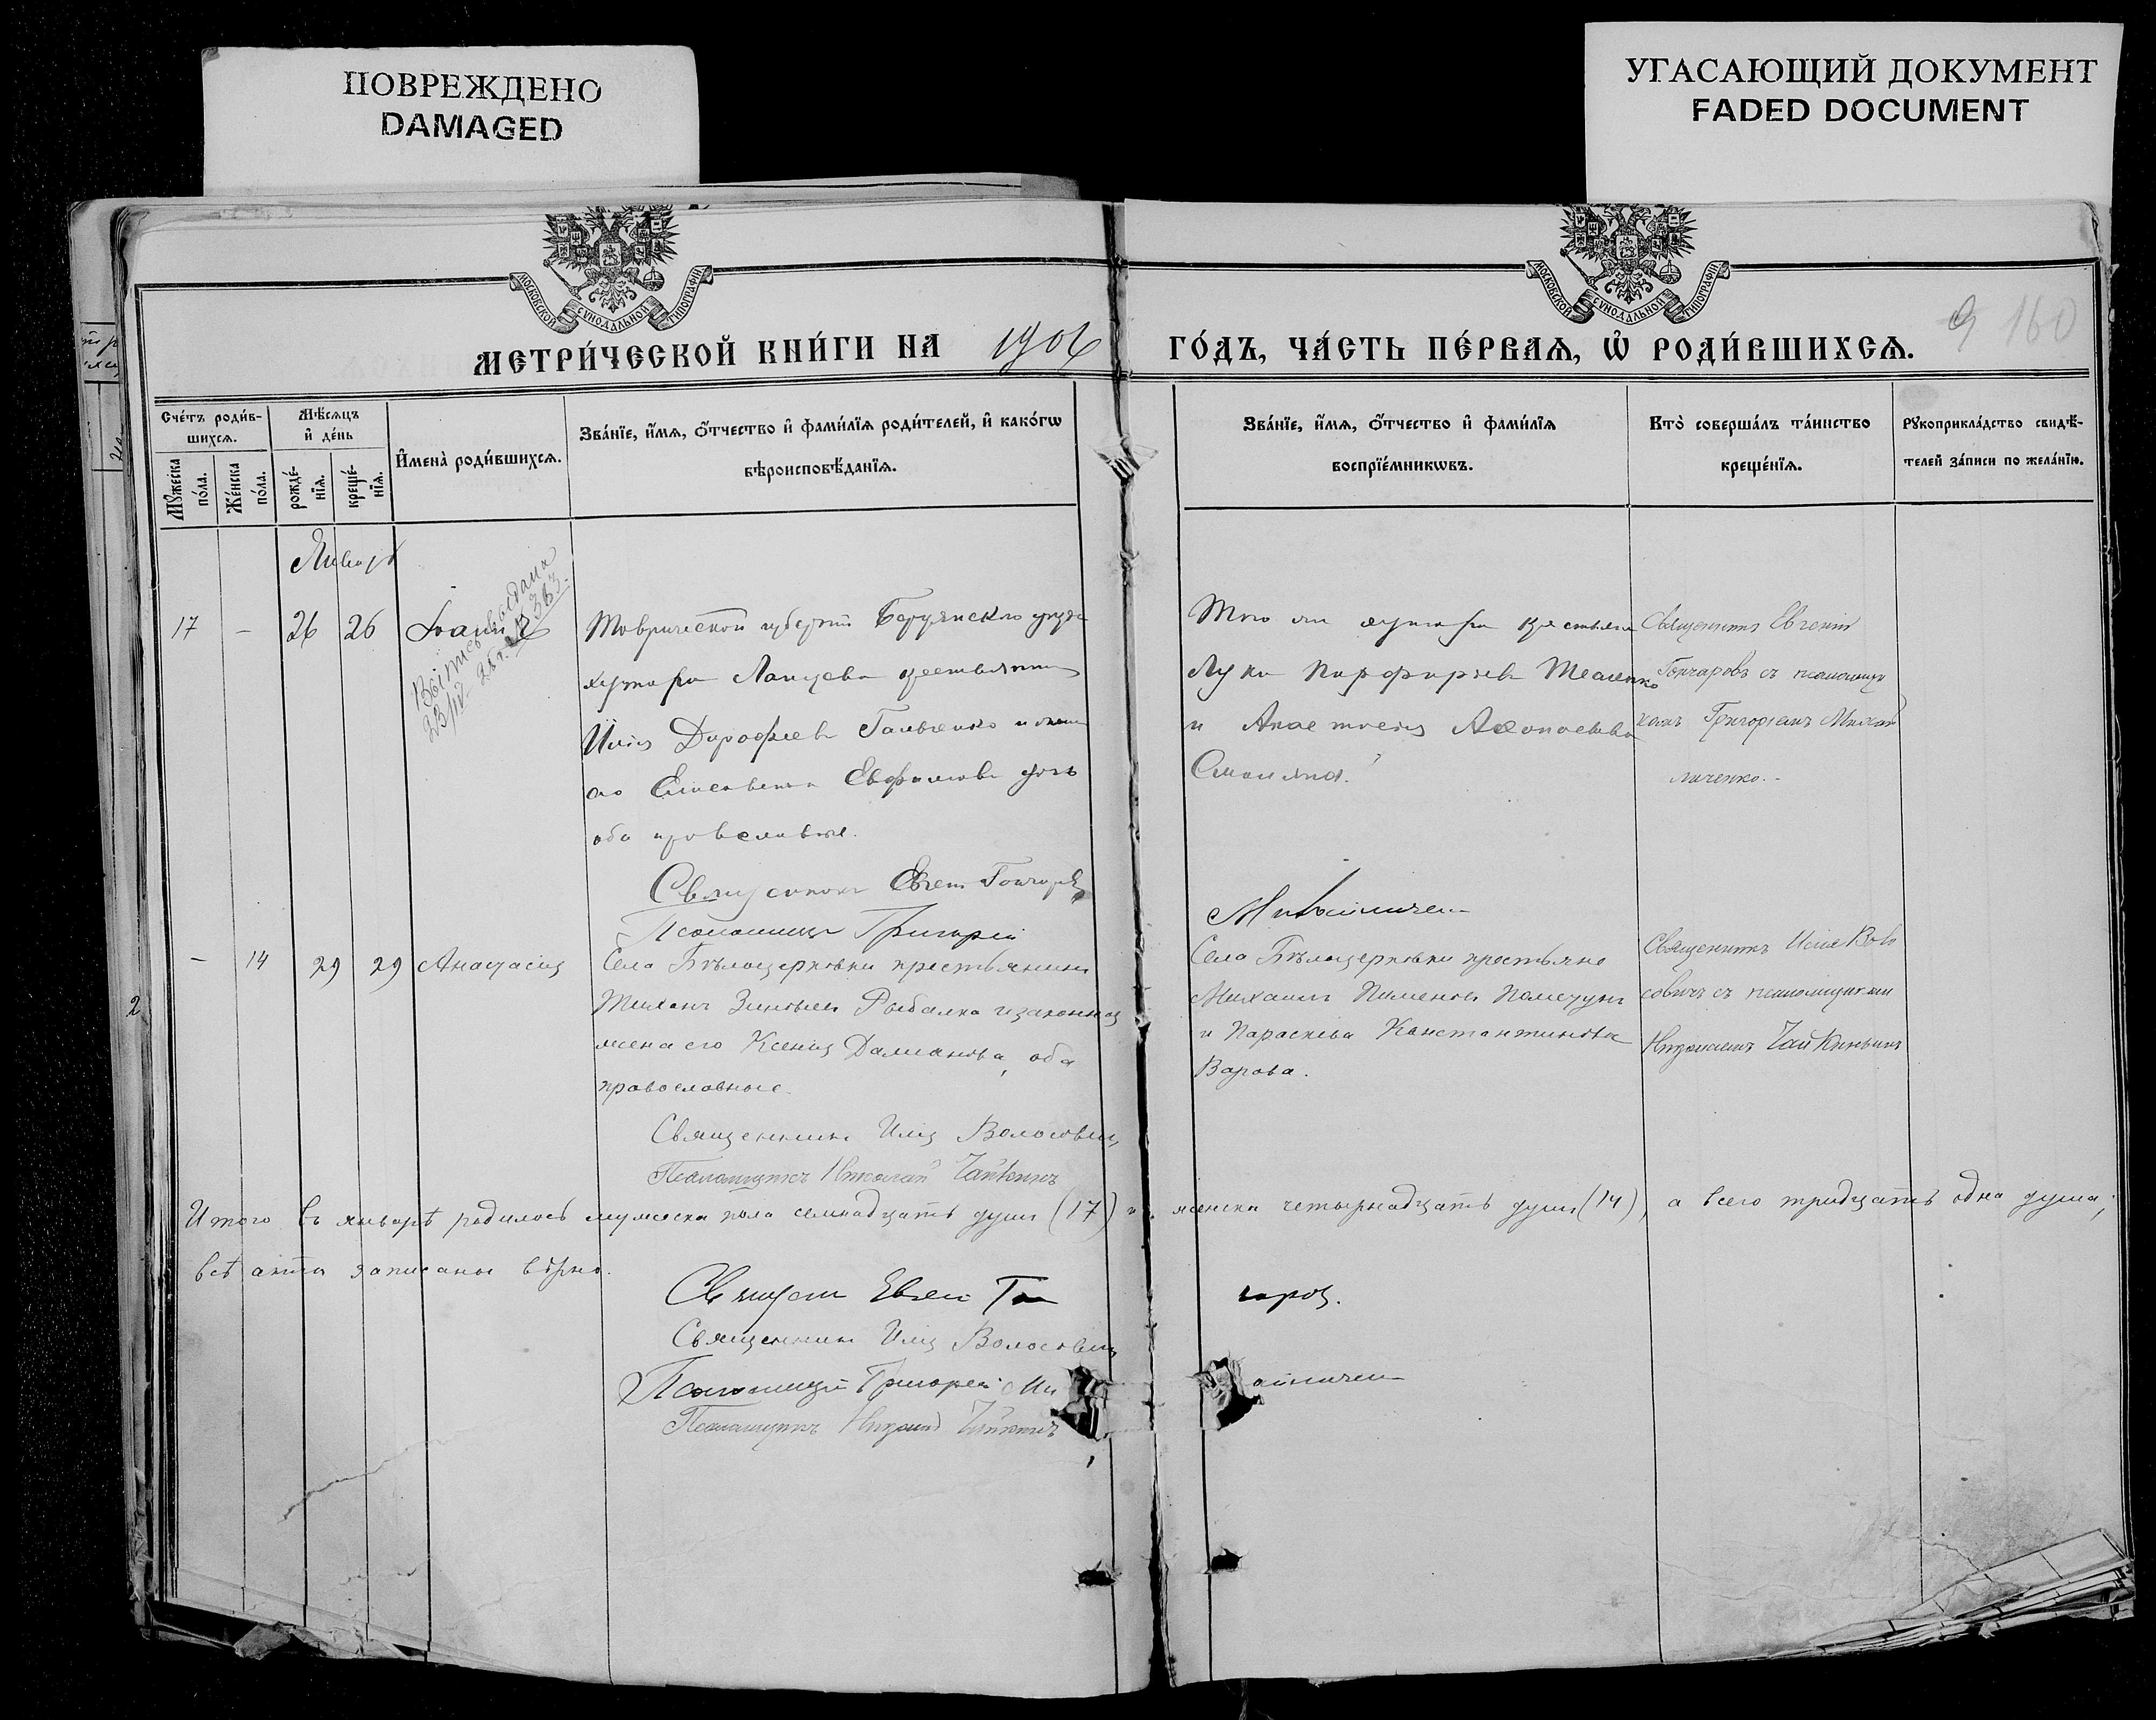 ПОВРЕЖДЕНО
DAMAGED
УГАСАЮЩИЙ ДОКУМЕНТ
FADED DOCUMENT
МОСКОВСКОЙ СѴНОДАЛЬНОЙ ТИПОГРАФІИ
МОСКОВСКОЙ СѴНОДАЛЬНОЙ ТИПОГРАФІИ
9 160
МЕТРИ́ЧЕСКОЙ КНИ́ГИ НА 1906
ГО́ДЪ, ЧА́СТЬ ПЕ́РВАѦ, Ѡ҆ РОДИ́ВШИХСѦ.
Сче́тъ роди́в-
шихсѧ.
Мꙋ́жеска по́ла.
Же́нска по́ла.
Мѣ́сѧцъ
и҆ де́нь
рожде́-
нїѧ.
креще́-
нїѧ.
И҆мена̀ роди́вшихсѧ.
Зва́нїе, и҆́мѧ, ѻ҆́тчество и҆ фами́лїѧ роди́телей, и҆ како́гѡ
вѣроисповѣ́данїѧ.
Зва́нїе, и҆́мѧ, ѻ҆́тчество и҆ фами́лїѧ
воспрїе́мникѡвъ.
Кто̀ соверша́лъ та́инство
креще́нїѧ.
Рꙋкоприкла́дство свидѣ́-
телей за́писи по жела́нїю.
Январь
17 - 26 26 Іоаннъ
Таврической губерніи Бердянскаго уѣзда
хутора крестьянинъ
Илія Дорофеевъ и жена
его Елисавета Евфимова
оба православные.
Священникъ Евгеній Гончаровъ
Псаломщикъ Григорій
Того же хутора крестьяне
Лука Порфирьевъ
и Анастасія
Михайличенко
Священникъ Евгеній
Гончаровъ съ псаломщи
комъ Григоріемъ Михай
личенко.-
- 14 29 29 Анастасія
Села Бѣлоцерковки крестьянинъ
Тихонъ Зиновьевъ Рыбалка и законная
жена его Ксенія Даміанова, оба
православные.
Священникъ Илія Волосовичъ
Псаломщикъ Николай Чайкинъ
Села Бѣлоцерковки крестьяне
Михаилъ Пименовъ
и Параскева Константинова
Варава.
Священникъ Илія Воло
совичъ съ псаломщикомъ
Николаемъ Чайкинымъ
Итого въ январѣ родилось мужеска пола семнадцать душъ (17) и женска четырнадцать душъ (14), а всего тридцать одна душа;
всѣ акты записаны вѣрно.
Священникъ Евгеній Гон чаровъ.
Священникъ Илія Волосовичъ
Псаломщикъ Григорій Ми айличенко
Псаломщикъ Николай Чайкинъ